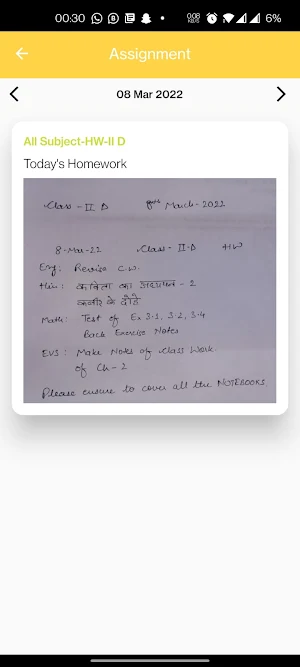 00:30
0.08 KB/S
6%
Assignment
08 Mar 2022
All Subject-HW-II D
Today's Homework
Class - II D 8th March-2022
8-Mar-22 Class - II-D HW
Eng: Revise C.W.
Hin: कविता का अदयापन - 2
कबीर के दोहे
Math: Test of Ex 3.1, 3.2, 3.4
Back Exercise Notes
EVS: Make Notes of Class Work
of Ch-2
Please ensure to cover all the NOTEBOOKS